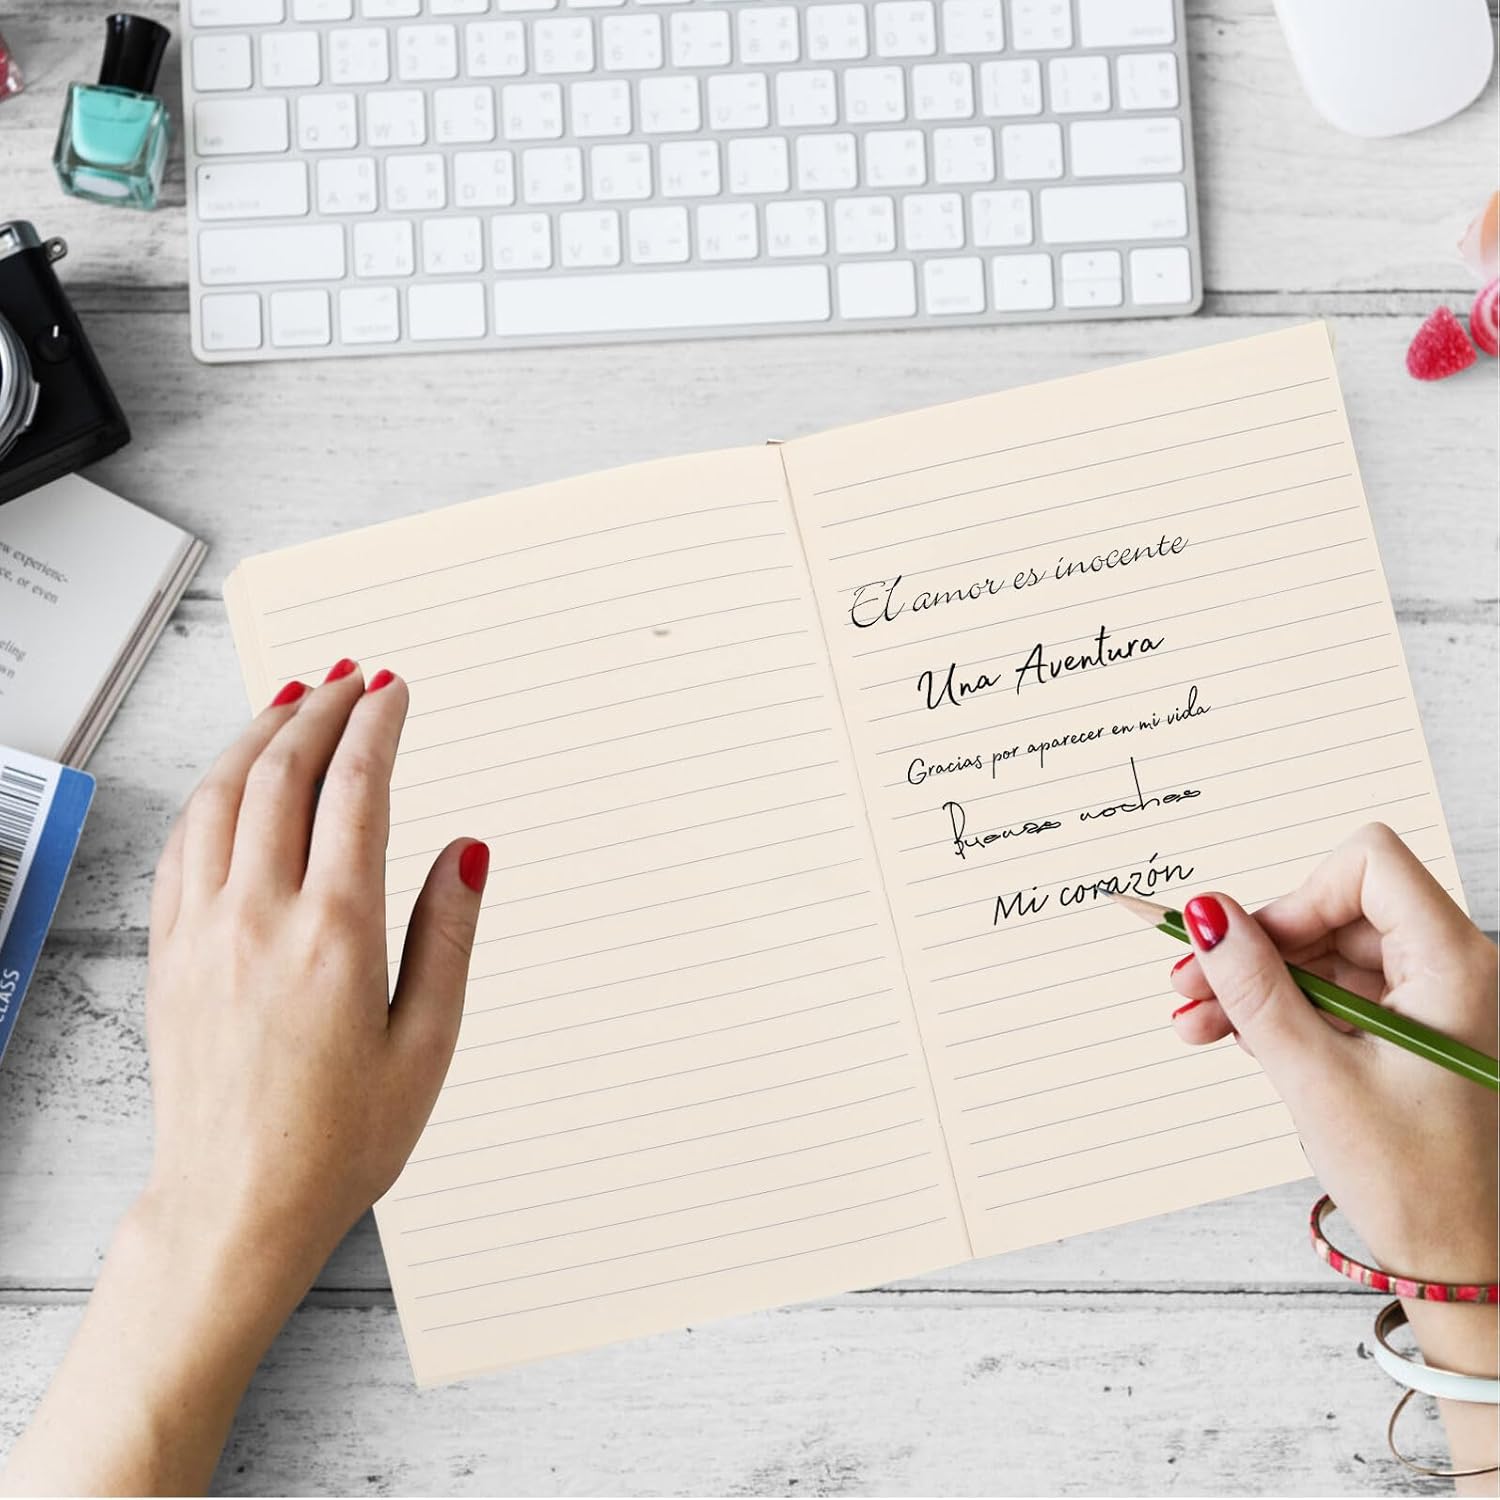 w experienc-
ce, or even
eling
wn
CLASS
El amor es inocente
Una Aventura
Gracias por aparecer en mi vida
Buenas noches
Mi corazón